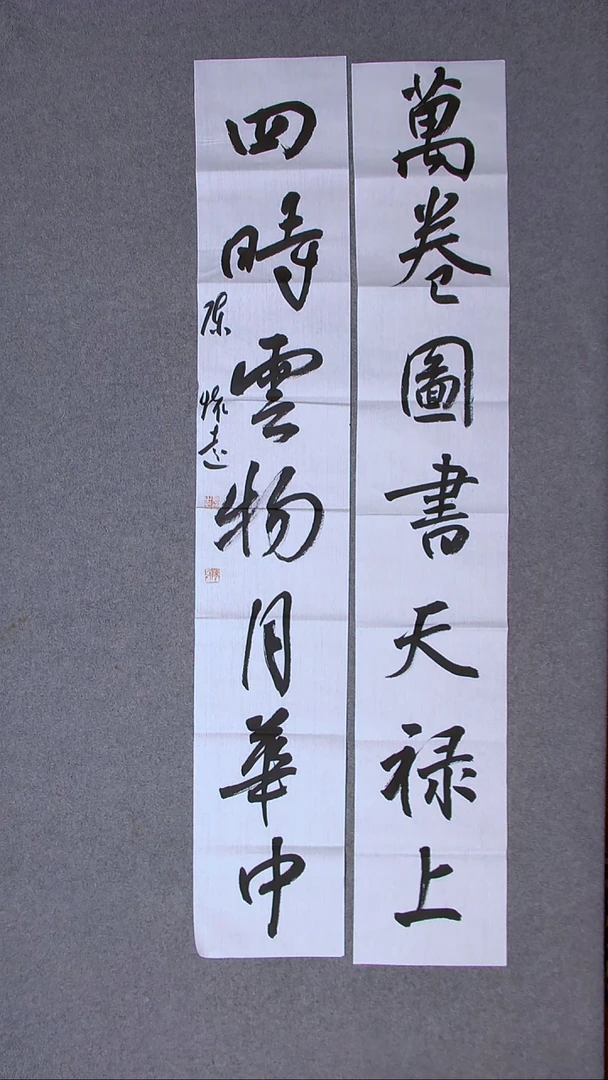 萬卷圖書天禄上
四時雲物月華中
陳懷遠